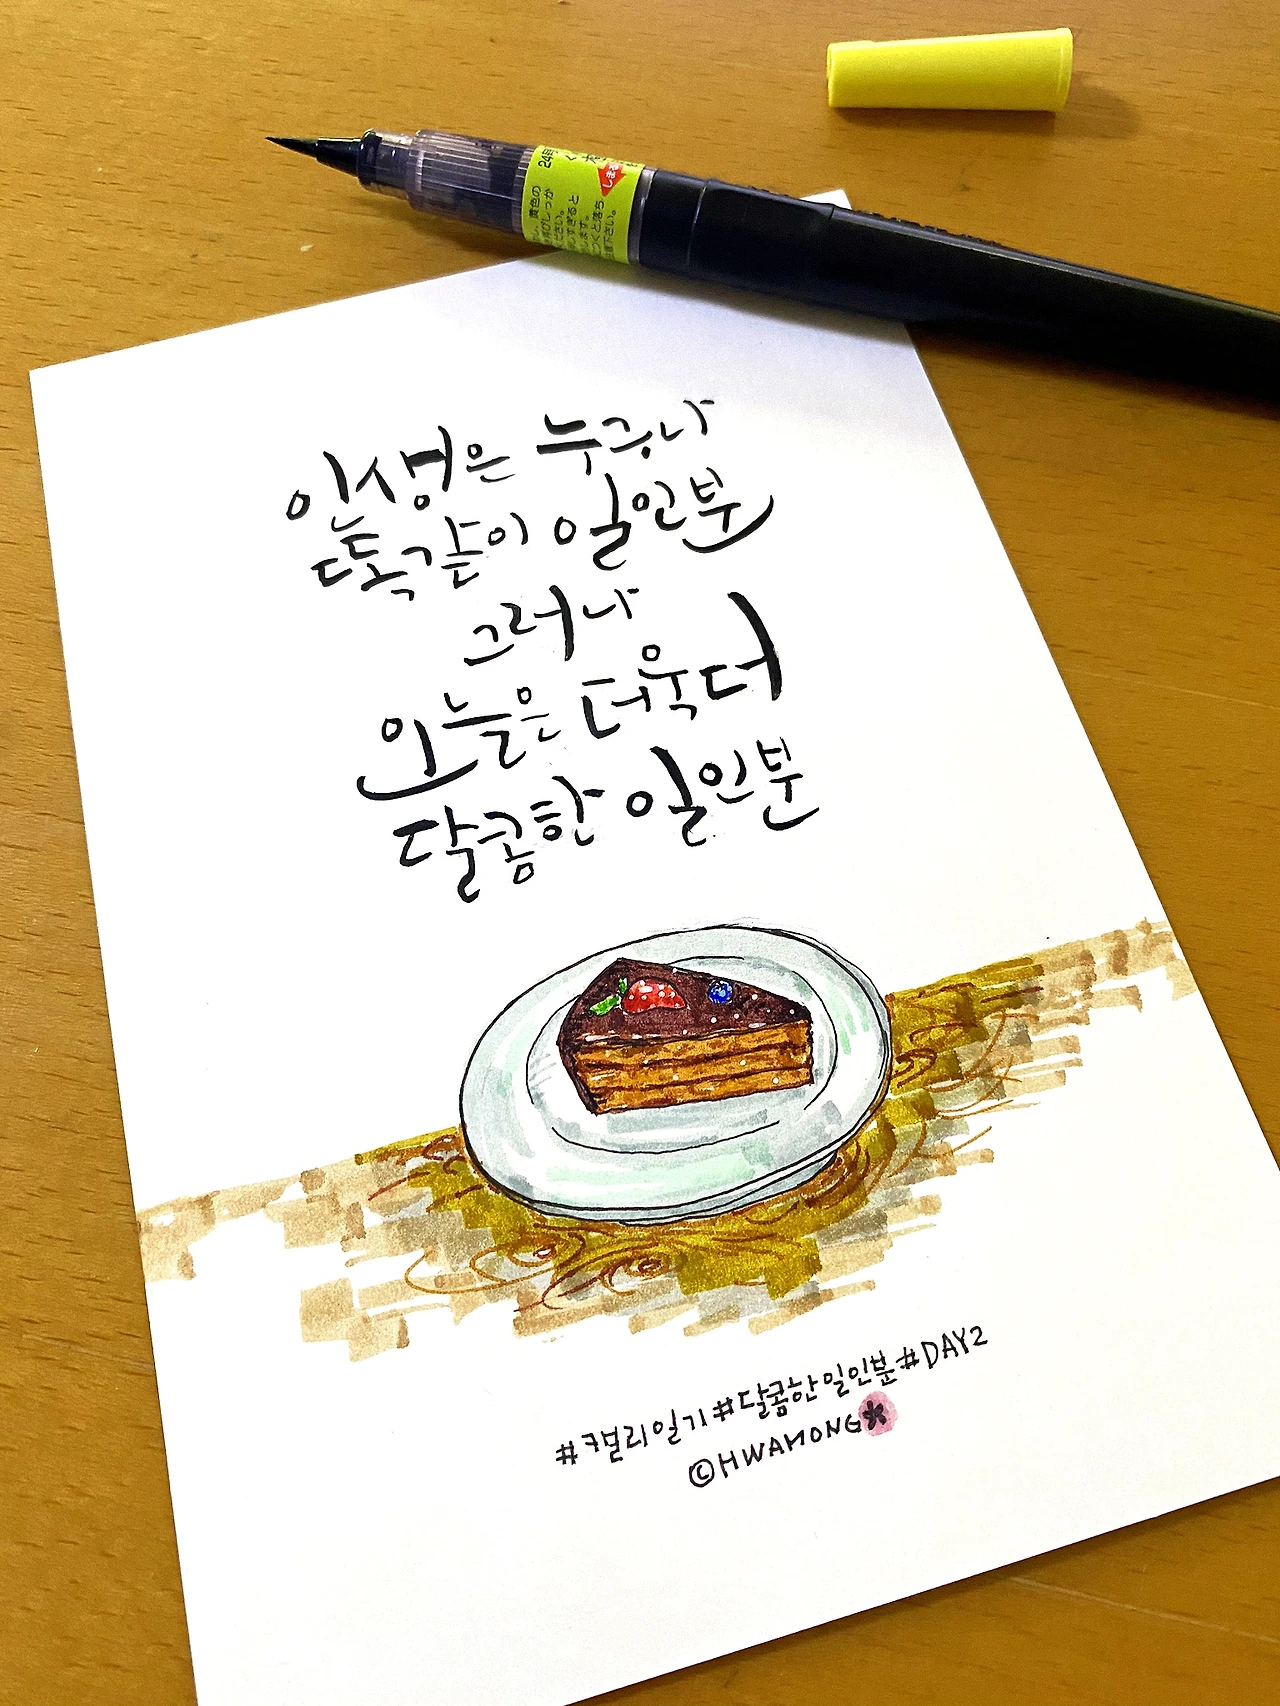 인생은 누구나
똑같이 일인분
그러나
오늘은 더욱더
달콤한 일인분
#캘리일기#달콤한일인분#DAY2
©HWAMONG